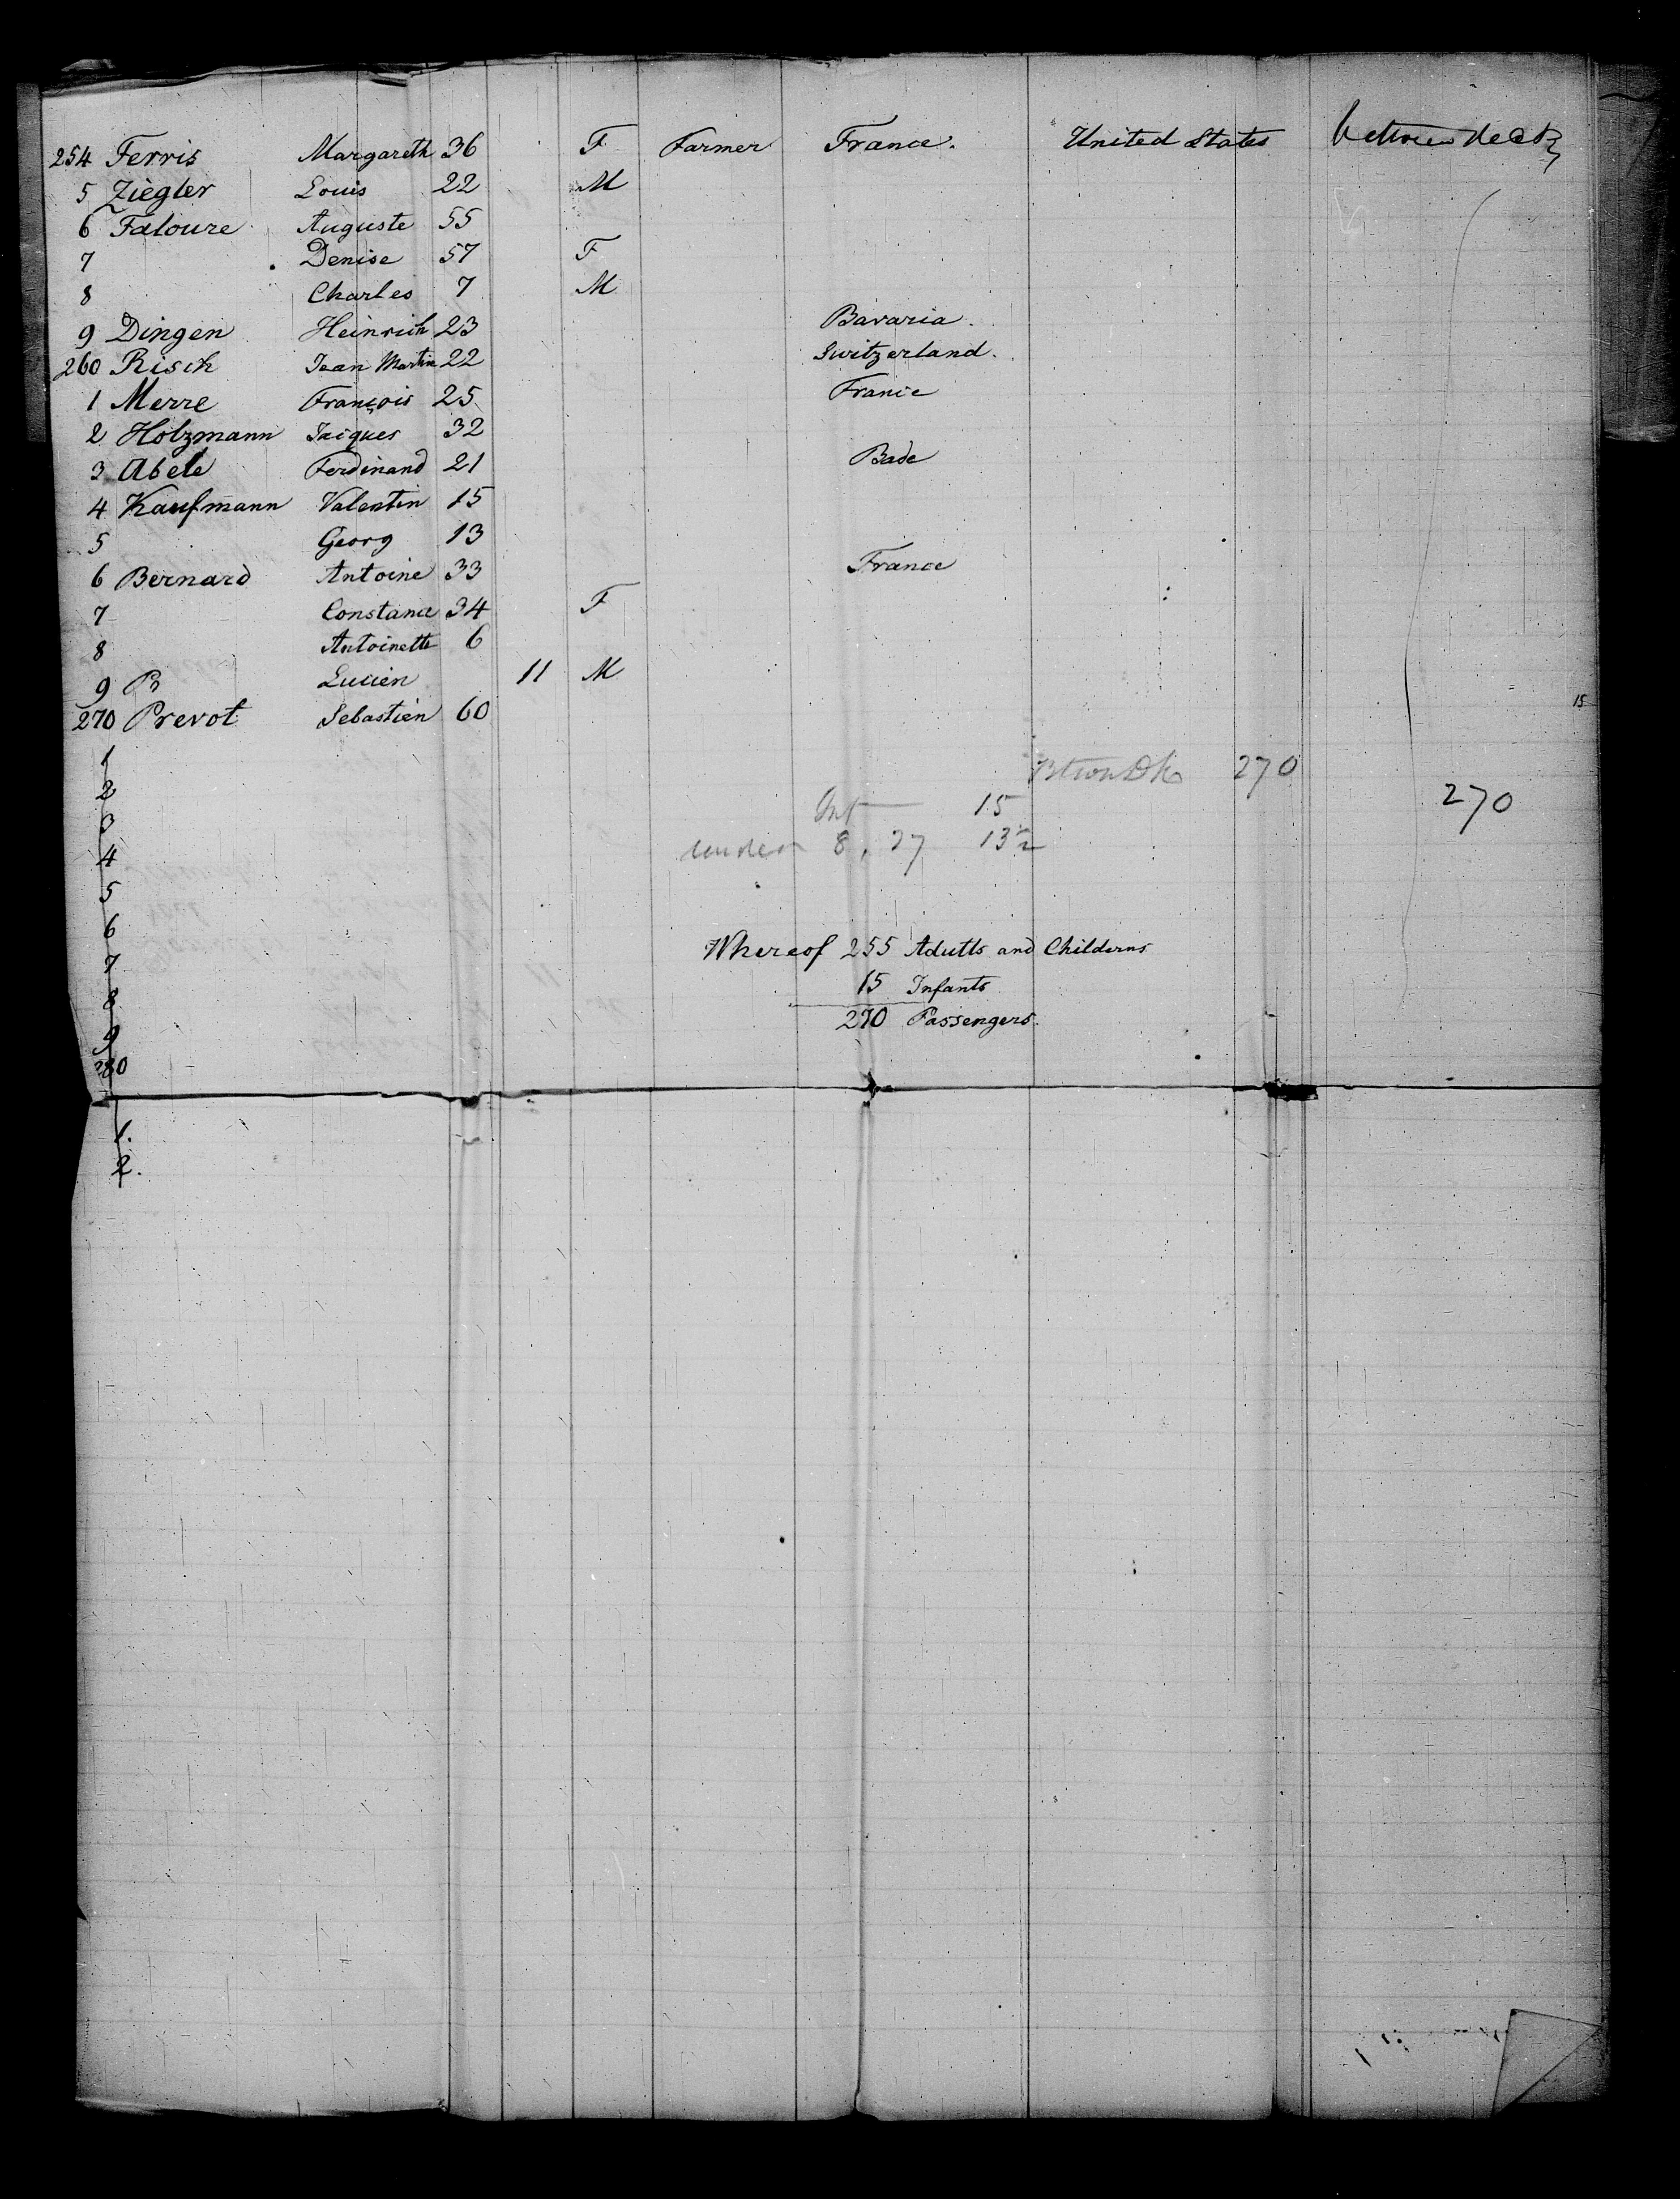 254 Ferris Margareth 36 F Farmer France. United States between decks
5 Ziegler Louis 22 M
6 Faloure Auguste 55
7 Denise 57 F
8 Charles 7 M
9 Dingen Heinrich 23 Bavaria.
260 Risch Jean Martin 22 Switzerland.
1 Merre François 25 France
2 Holzmann Jacques 32
3 Abele Ferdinand 21 Bade
4 Kaufmann Valentin 15
5 Georg 13
6 Bernard Antoine 33 France
7 Constance 34 F
8 Antoinette 6
9 B Lucien 11 M
270 Prevot Sebastien 60
15
1
2 270
270
3 Inf 15
4 under 8, 27 13½
5
6
7 Whereof 255 Adults and Childerns
8 15 Infants
9 270 Passengers.
280
1.
2.